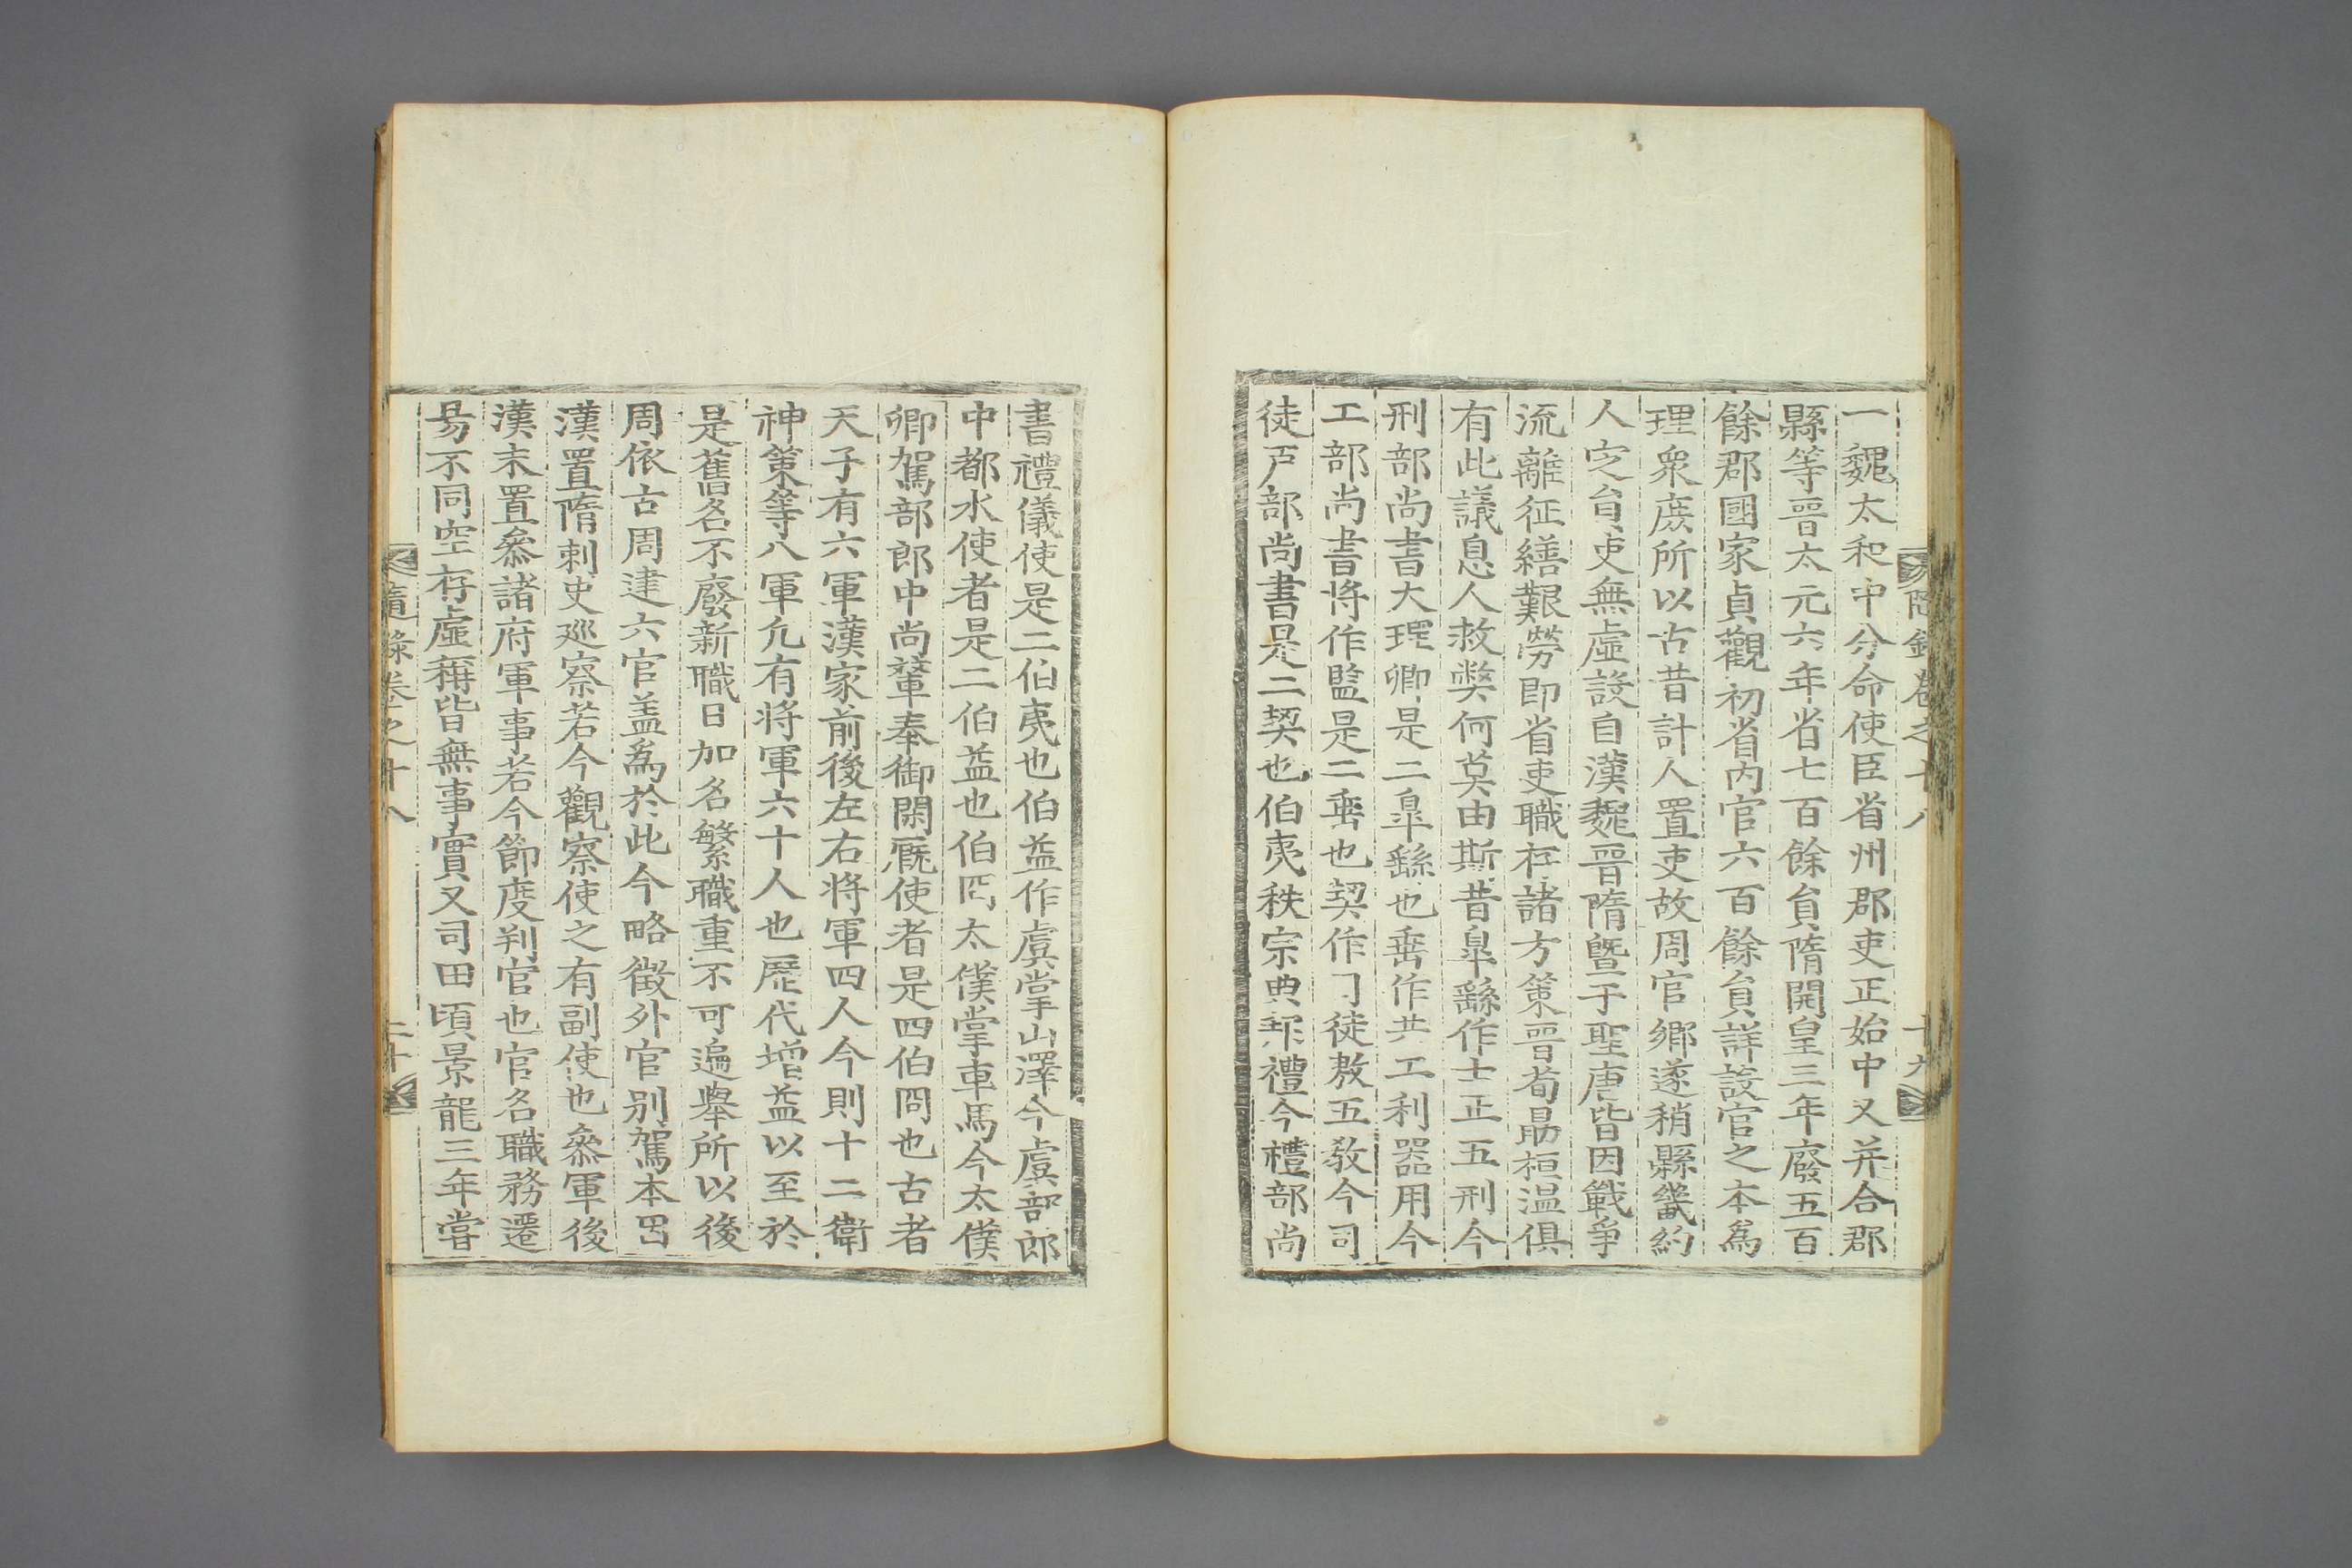 隨錄卷之十八
十九
一魏太和中分命使臣省州郡吏正始中又并合郡
縣等晉太元六年省七百餘貟隋開皇三年廢五百
餘郡國家貞觀初省內官六百餘貟詳設官之本爲
理衆庻所以古昔計人置吏故周官鄉遂稍縣畿約
人定貟吏無虛設自漢魏晉隋曁于聖唐皆因戰爭
流離征繕艱勞即省吏職存諸方策晉荀勗桓温俱
有此議息人救獘何莫由斯昔皐繇作士正五刑今
刑部尚書大理卿是二皐繇也垂作共工利器用今
工部尚書將作監是二垂也契作司徒敷五敎今司
徒戶部尚書是二契也伯夷秩宗典邦禮今禮部尚
書禮儀使是二伯夷也伯益作虞掌山澤今虞部郎
中都水使者是二伯益也伯冏太僕掌車馬今太僕
卿駕部郎中尚輦奉御閑廐使者是四伯冏也古者
天子有六軍漢家前後左右將軍四人今則十二衛
神策等八軍凢有將軍六十人也歷代增益以至於
是舊名不廢新職日加名繁職重不可遍擧所以後
周依古周建六官盖爲於此今略徵外官别駕本因
漢置隋刺史廵察若今觀察使之有副使也叅軍後
漢末置叅諸府軍事若今節度判官也官名職務遷
易不同空存虛稱皆無事實又司田頃景龍三年嘗
隨錄卷之十八
二十